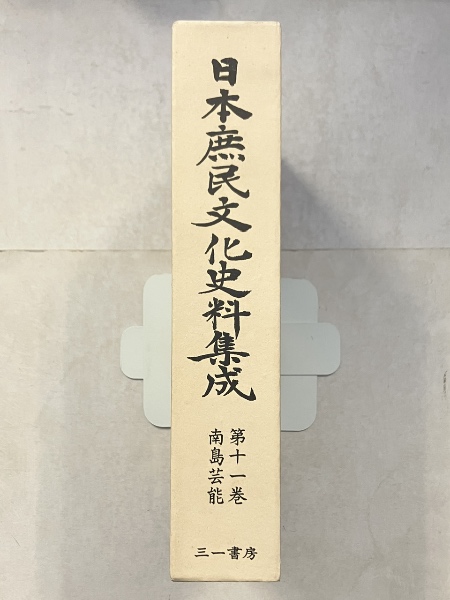 日本庶民文化史料集成
第十一巻
南島芸能
三一書房